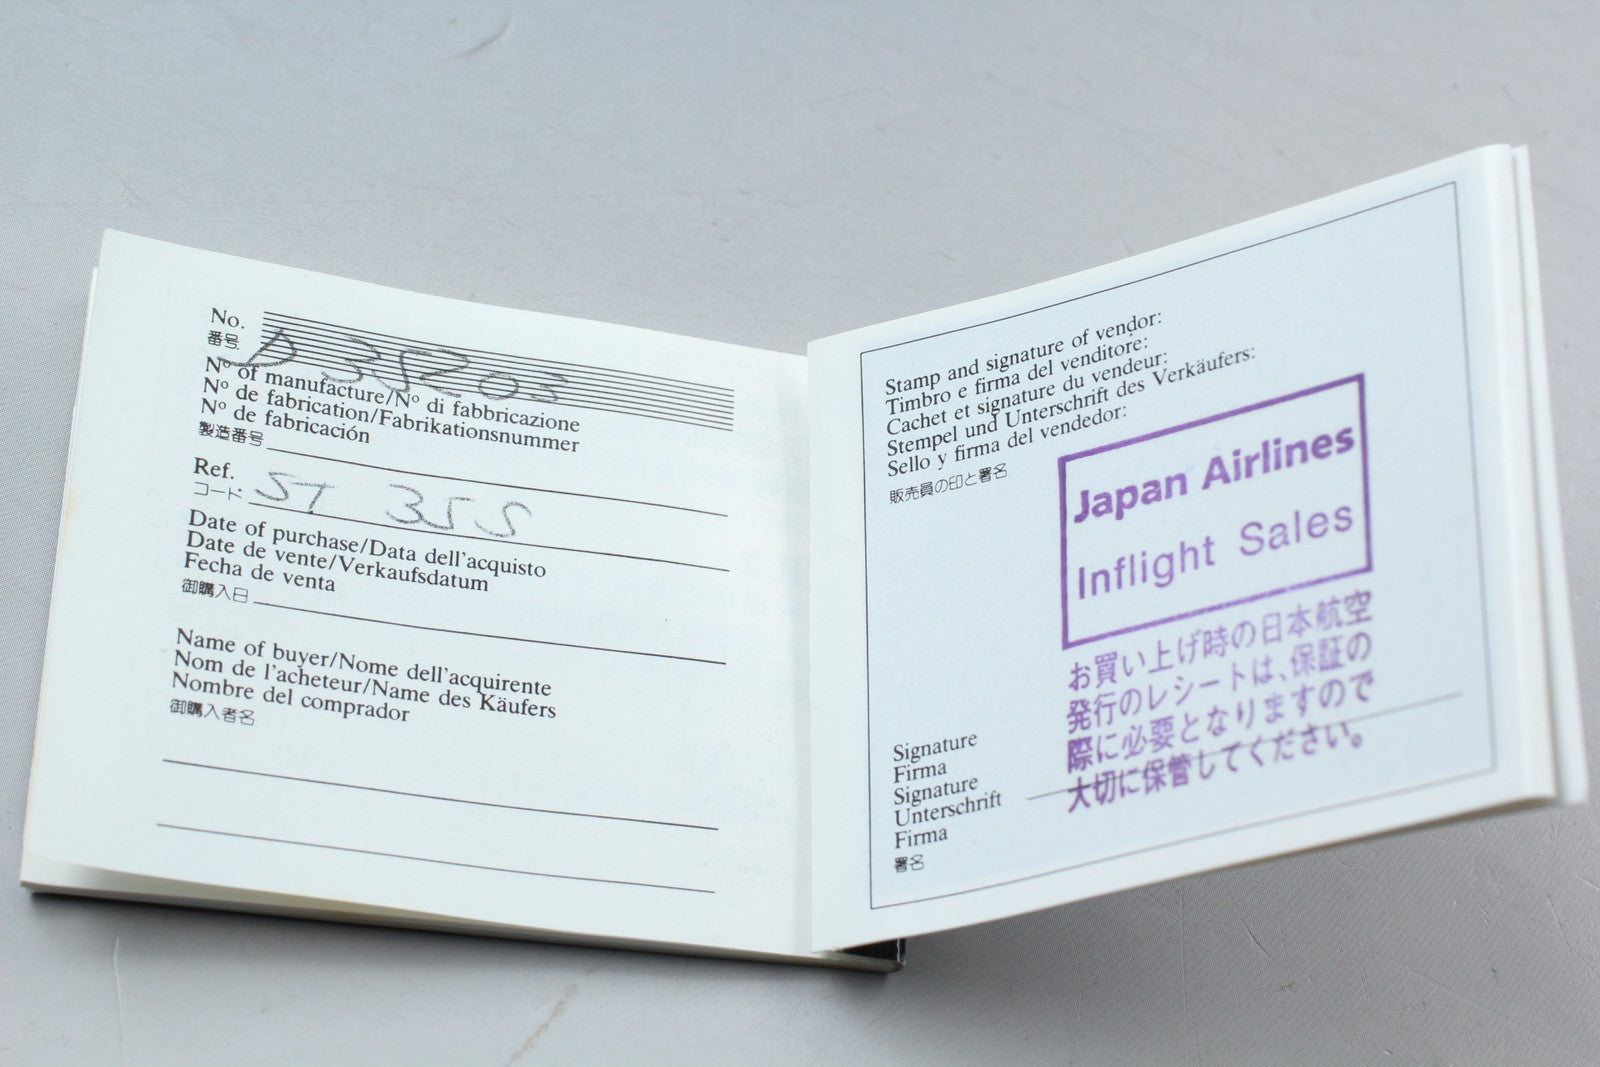 No.
番号 D 35203
Nº of manufacture/Nº di fabbricazione
Nº de fabrication/Fabrikationsnummer
Nº de fabricación
製造番号
Ref.
コード ST 35S
Date of purchase/Data dell'acquisto
Date de vente/Verkaufsdatum
Fecha de venta
御購入日
Name of buyer/Nome dell'acquirente
Nom de l'acheteur/Name des Käufers
Nombre del comprador
御購入者名
Stamp and signature of vendor:
Timbro e firma del venditore:
Cachet et signature du vendeur:
Stempel und Unterschrift des Verkäufers:
Sello y firma del vendedor:
販売員の印と署名
Japan Airlines
Inflight Sales
お買い上げ時の日本航空
発行のレシートは、保証の
際に必要となりますので
大切に保管してください。
Signature
Firma
Signature
Unterschrift
Firma
署名